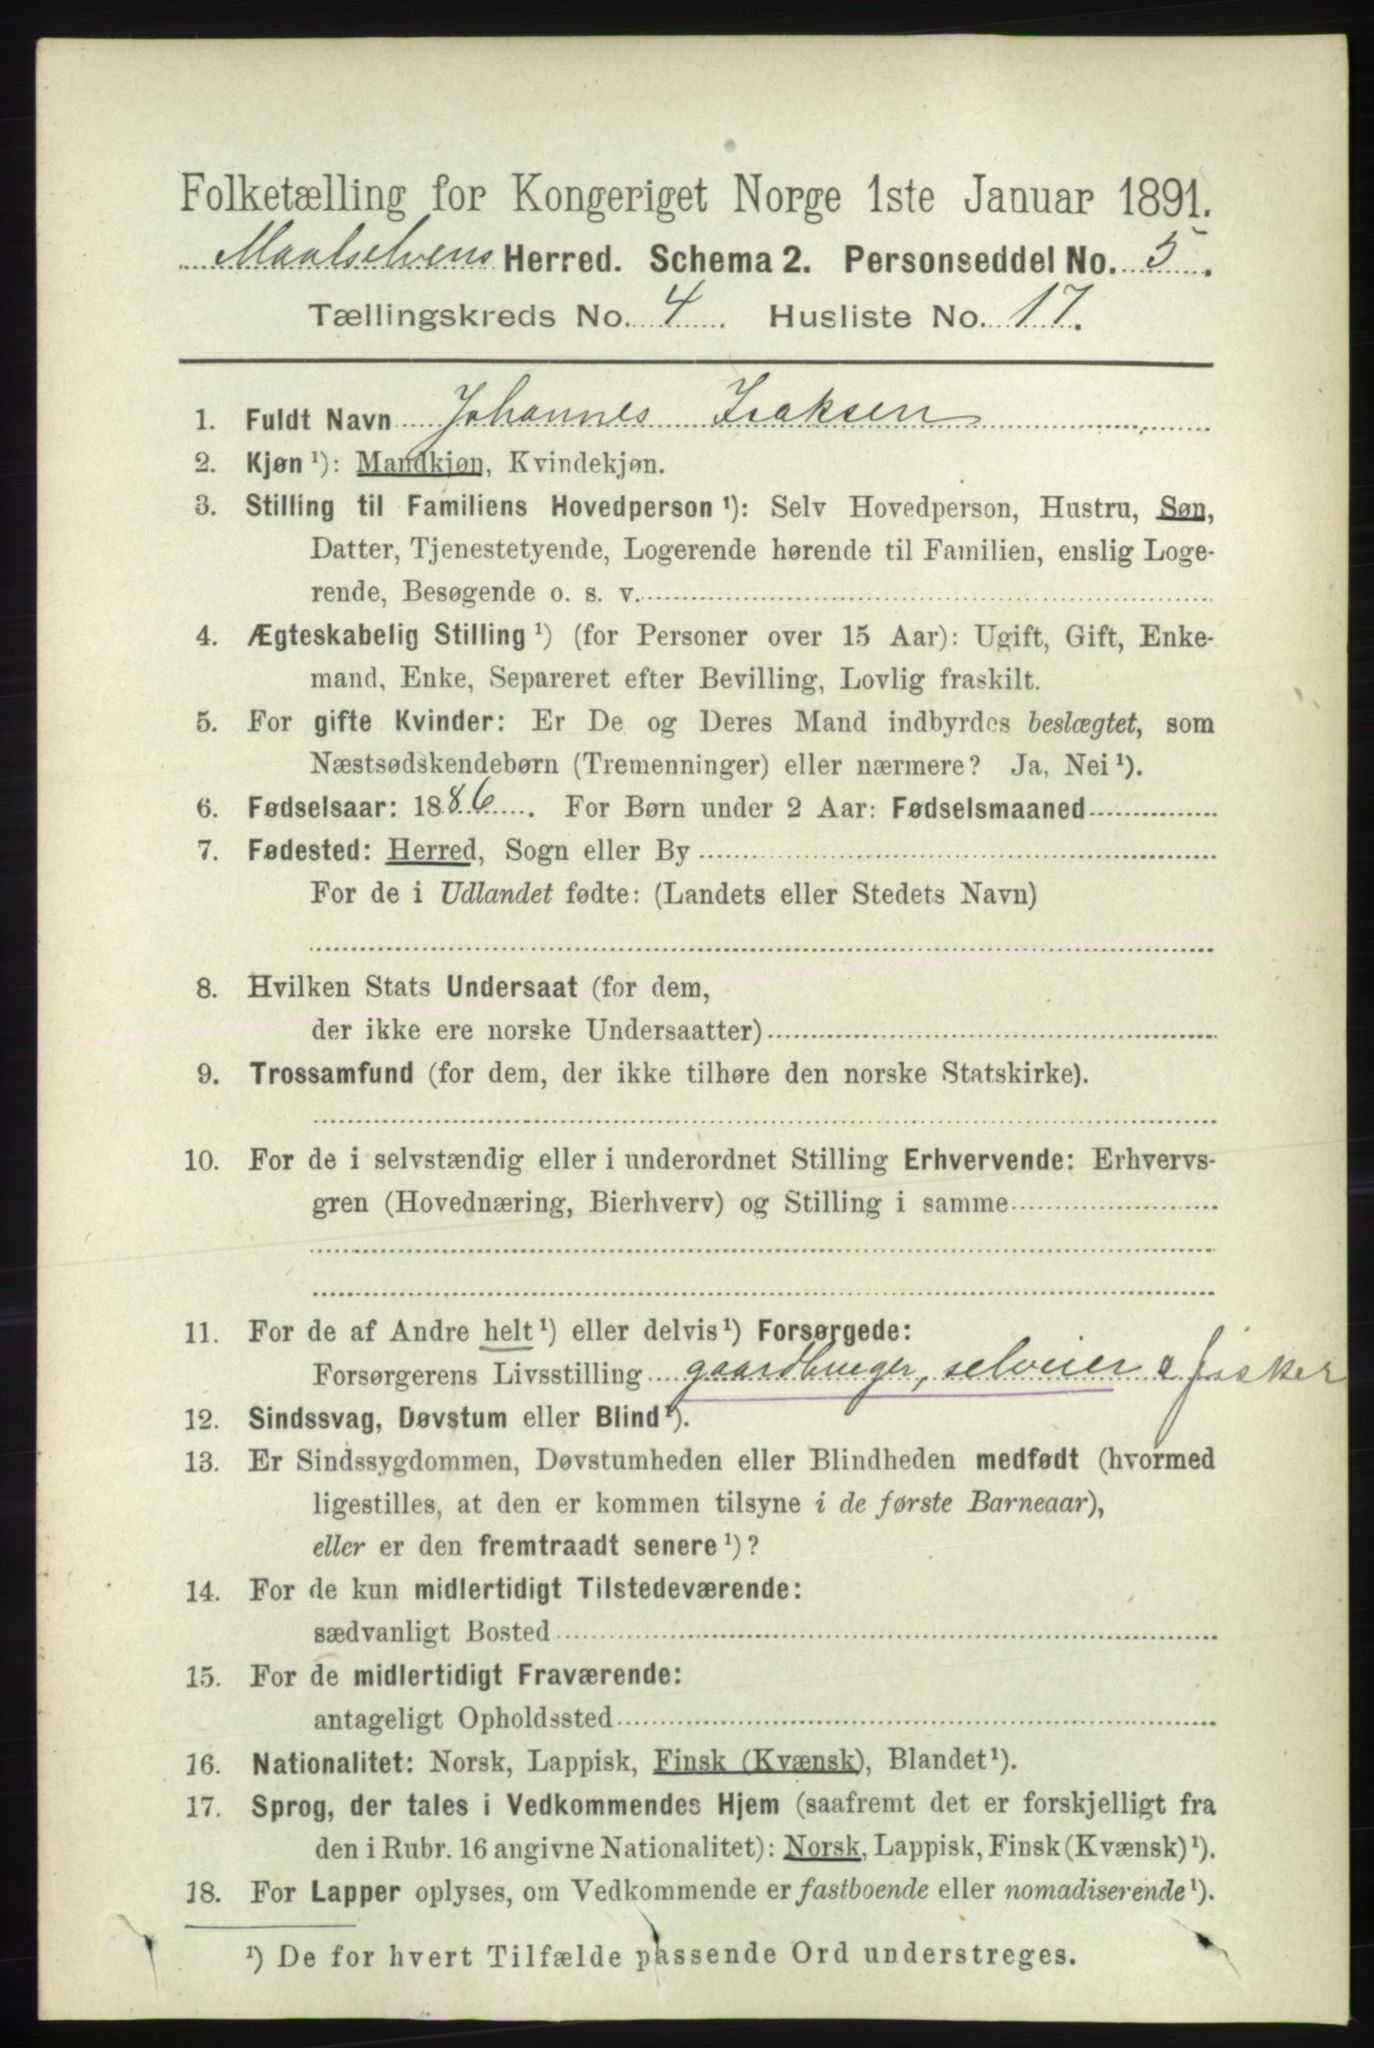 Folketælling for Kongeriget Norge 1ste Januar 1891.
Maalselvens Herred. Schema 2. Personseddel No. 5.
Tællingskreds No. 4. Husliste No. 17.
1. Fuldt Navn Johannes Isaksen
2. Kjøn ¹): Mandkjøn, Kvindekjøn.
3. Stilling til Familiens Hovedperson ¹): Selv Hovedperson, Hustru, Søn,
Datter, Tjenestetyende, Logerende hørende til Familien, enslig Loge-
rende, Besøgende o. s. v.
4. Ægteskabelig Stilling ¹) (for Personer over 15 Aar): Ugift, Gift, Enke-
mand, Enke, Separeret efter Bevilling, Lovlig fraskilt.
5. For gifte Kvinder: Er De og Deres Mand indbyrdes beslægtet, som
Næstsødskendebørn (Tremenninger) eller nærmere? Ja, Nei ¹).
6. Fødselsaar: 1886. For Børn under 2 Aar: Fødselsmaaned
7. Fødested: Herred, Sogn eller By
For de i Udlandet fødte: (Landets eller Stedets Navn)
8. Hvilken Stats Undersaat (for dem,
der ikke ere norske Undersaatter)
9. Trossamfund (for dem, der ikke tilhøre den norske Statskirke).
10. For de i selvstændig eller i underordnet Stilling Erhvervende: Erhvervs-
gren (Hovednæring, Bierhverv) og Stilling i samme
11. For de af Andre helt ¹) eller delvis ¹) Forsørgede:
Forsørgerens Livsstilling gaardbruger, selveier & fisker
12. Sindssvag, Døvstum eller Blind ¹).
13. Er Sindssygdommen, Døvstumheden eller Blindheden medfødt (hvormed
ligestilles, at den er kommen tilsyne i de første Barneaar),
eller er den fremtraadt senere ¹)?
14. For de kun midlertidigt Tilstedeværende:
sædvanligt Bosted
15. For de midlertidigt Fraværende:
antageligt Opholdssted
16. Nationalitet: Norsk, Lappisk, Finsk (Kvænsk), Blandet ¹).
17. Sprog, der tales i Vedkommendes Hjem (saafremt det er forskjelligt fra
den i Rubr. 16 angivne Nationalitet): Norsk, Lappisk, Finsk (Kvænsk) ¹).
18. For Lapper oplyses, om Vedkommende er fastboende eller nomadiserende ¹).
¹) De for hvert Tilfælde passende Ord understreges.